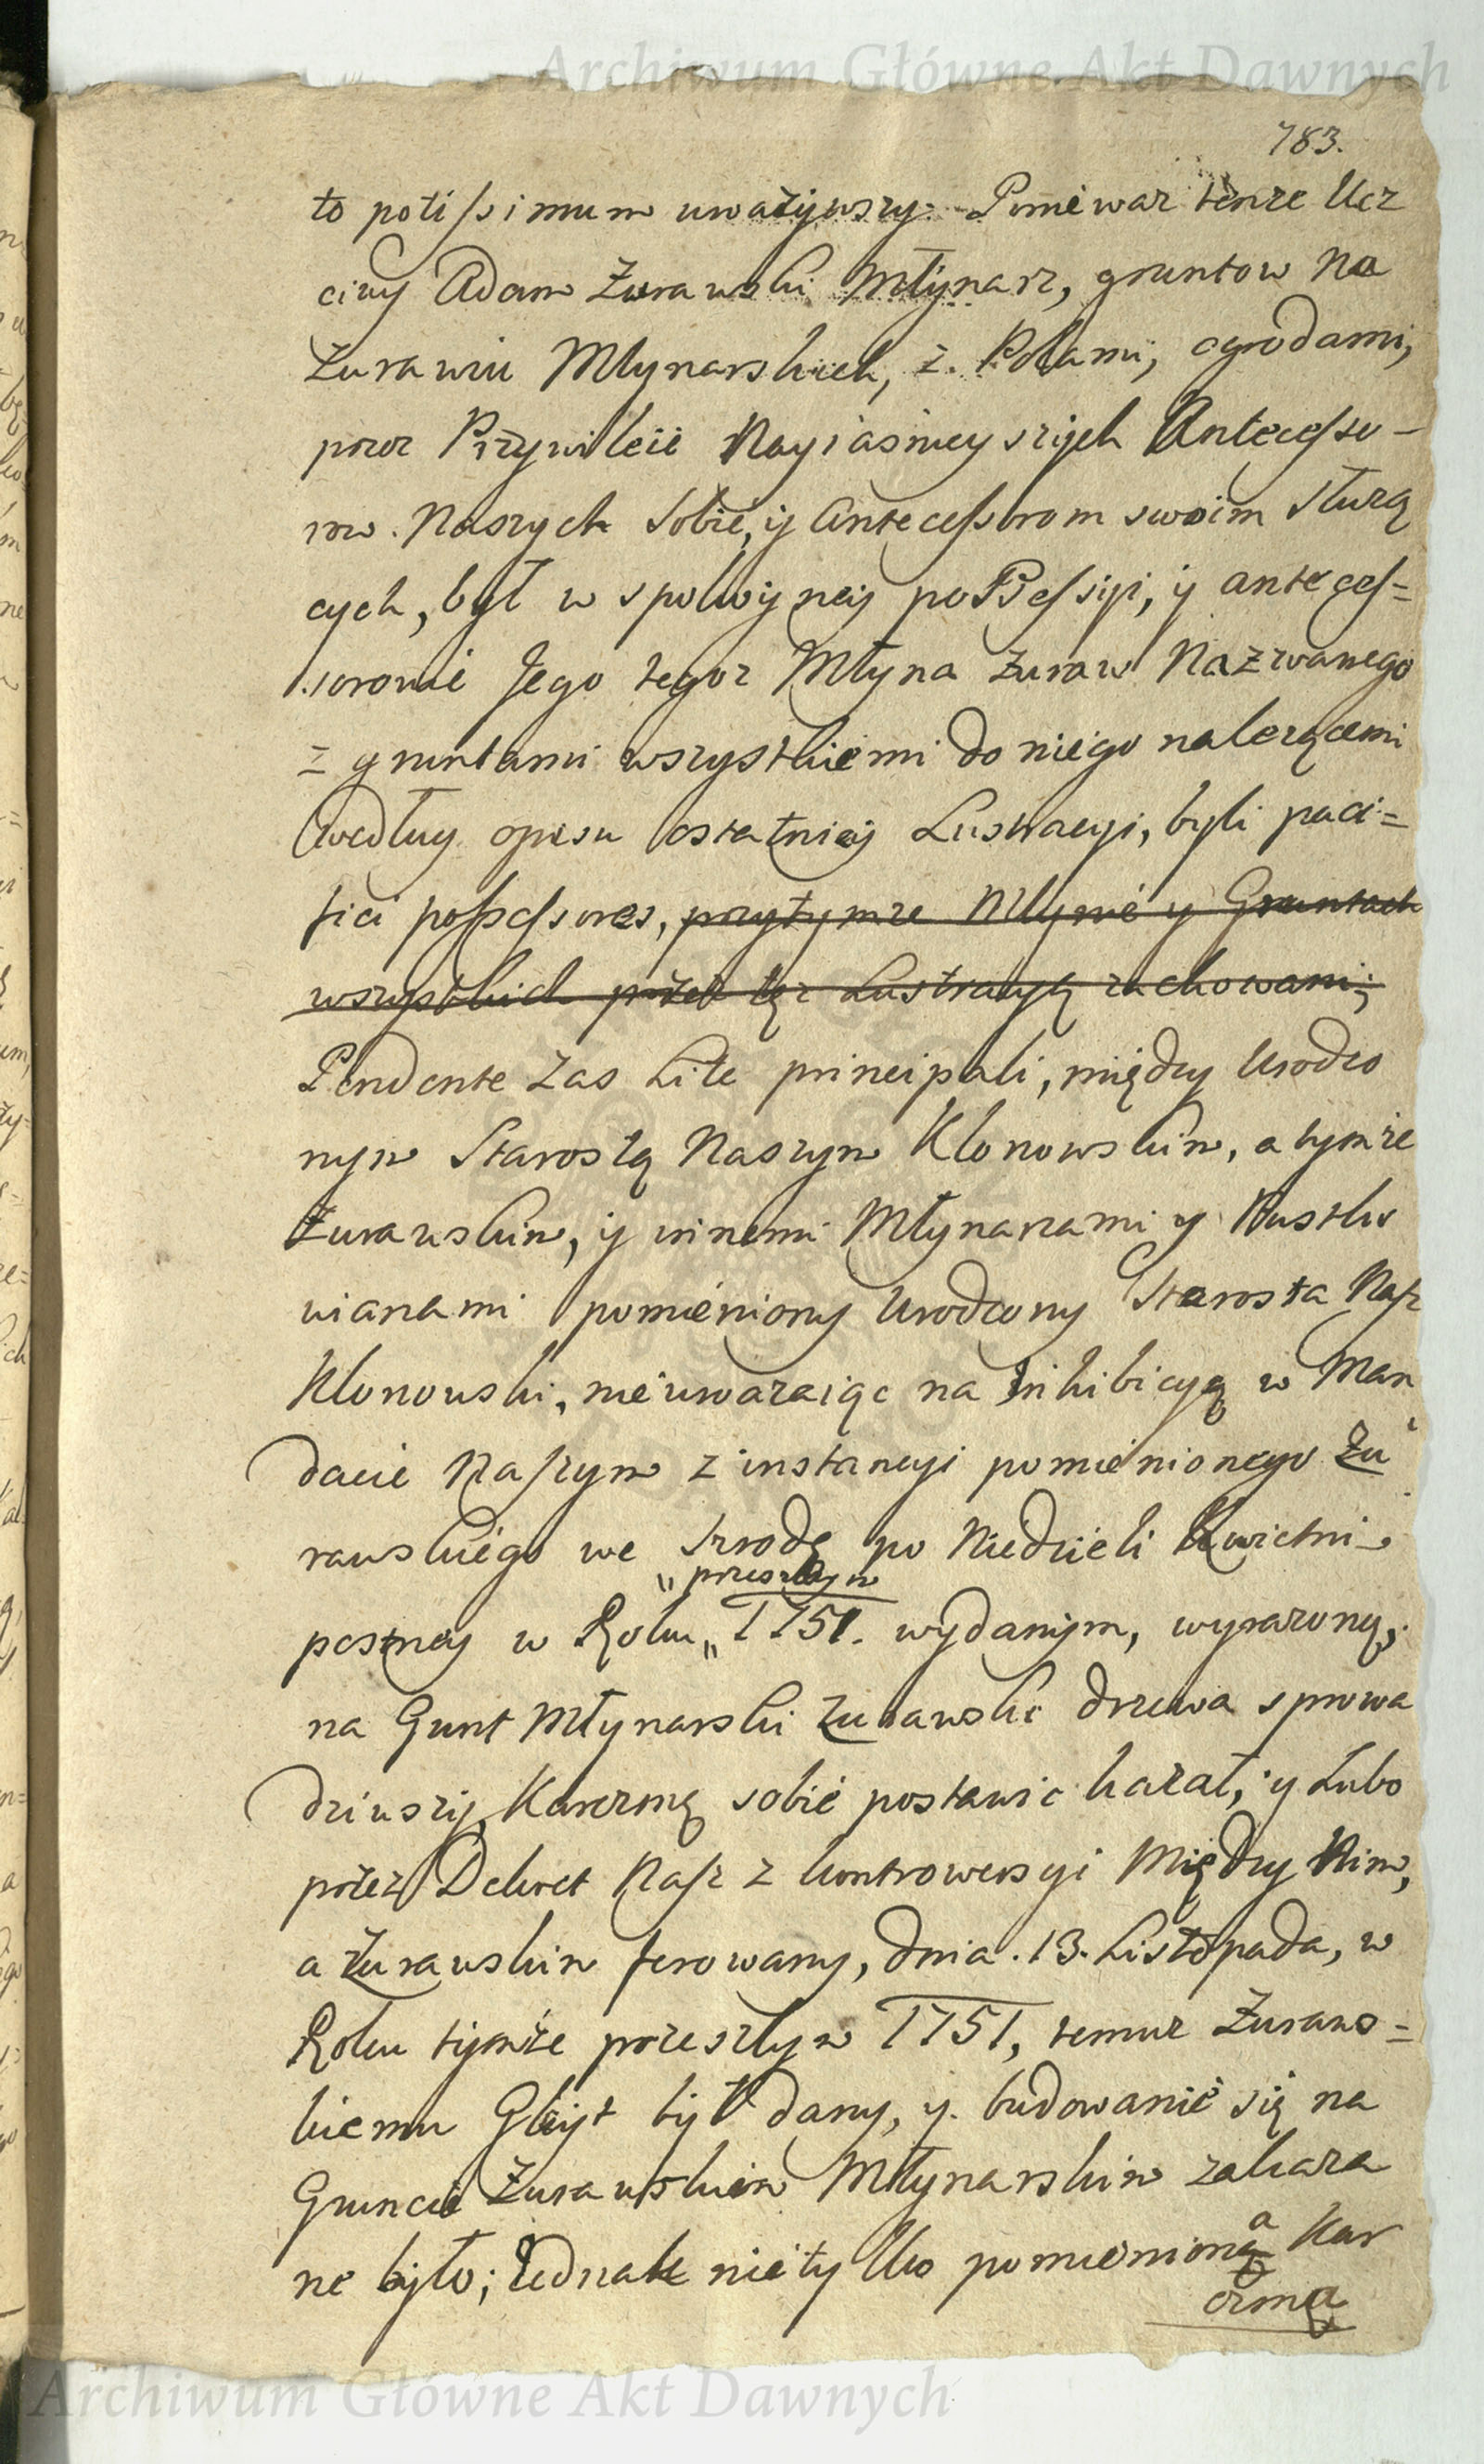 Archiwum Główne Akt Dawnych
783.
to potissimum uważywszy. Poniewaz tenze Ucz
ciwy Adam Zurawski Młynarz, gruntow na
Zurawiu Mlynarskich, z Polami, ogrodami,
przez Przywileie Nayiasnieyszych Antecesso-
row Naszych sobie, y Antecessorom swoim słuzą
cych, był w spokoyney possessyi, y anteces=
sorowie Jego tegoz Młyna Zuraw Nazwanego
z gruntami wszystkiemi do niego nalezącemi
według opisu ostatniey Lustracyi, byli paci=
fici possessores, przytymze Mlynie y Gruntach
wszystkich przez tęz Lustracyą zachowani;
Pendente zas Lite principali, między Urodzo
nym Starostą Naszym Klonowskim, a tymze
Zurawskim, y innemi Młynarzami y Pustko
wianami pomieniony Urodzony Starosta Nasz
Klonowski, nieuwazaiąc na Inhibicyą w Man
dacie Naszym z instancyi pomienionego Zu
rawskiego we Srzodę po Niedzieli Kwietni
przeszłym
postney w Roku 1751. wydanym, wyrazoną,
na Gunt Młynarski Zurawski drzewa sprowa
dziwszy, Karczmę sobie postawic kazał, y Lubo
przez Dekret Nasz z kontrowersyi Między Nim,
a Zurawskim ferowany, dnia 13. Listopada, w
Roku tymże przeszlym 1751, temuz Zuraws=
kiemu Gleyt był dany, y budowanie się na
Gruncie Zurawskim Młynarskim zakaza
ne było; Jednak nietylko pomienioną Kar
czmą
Archiwum Główne Akt Dawnych